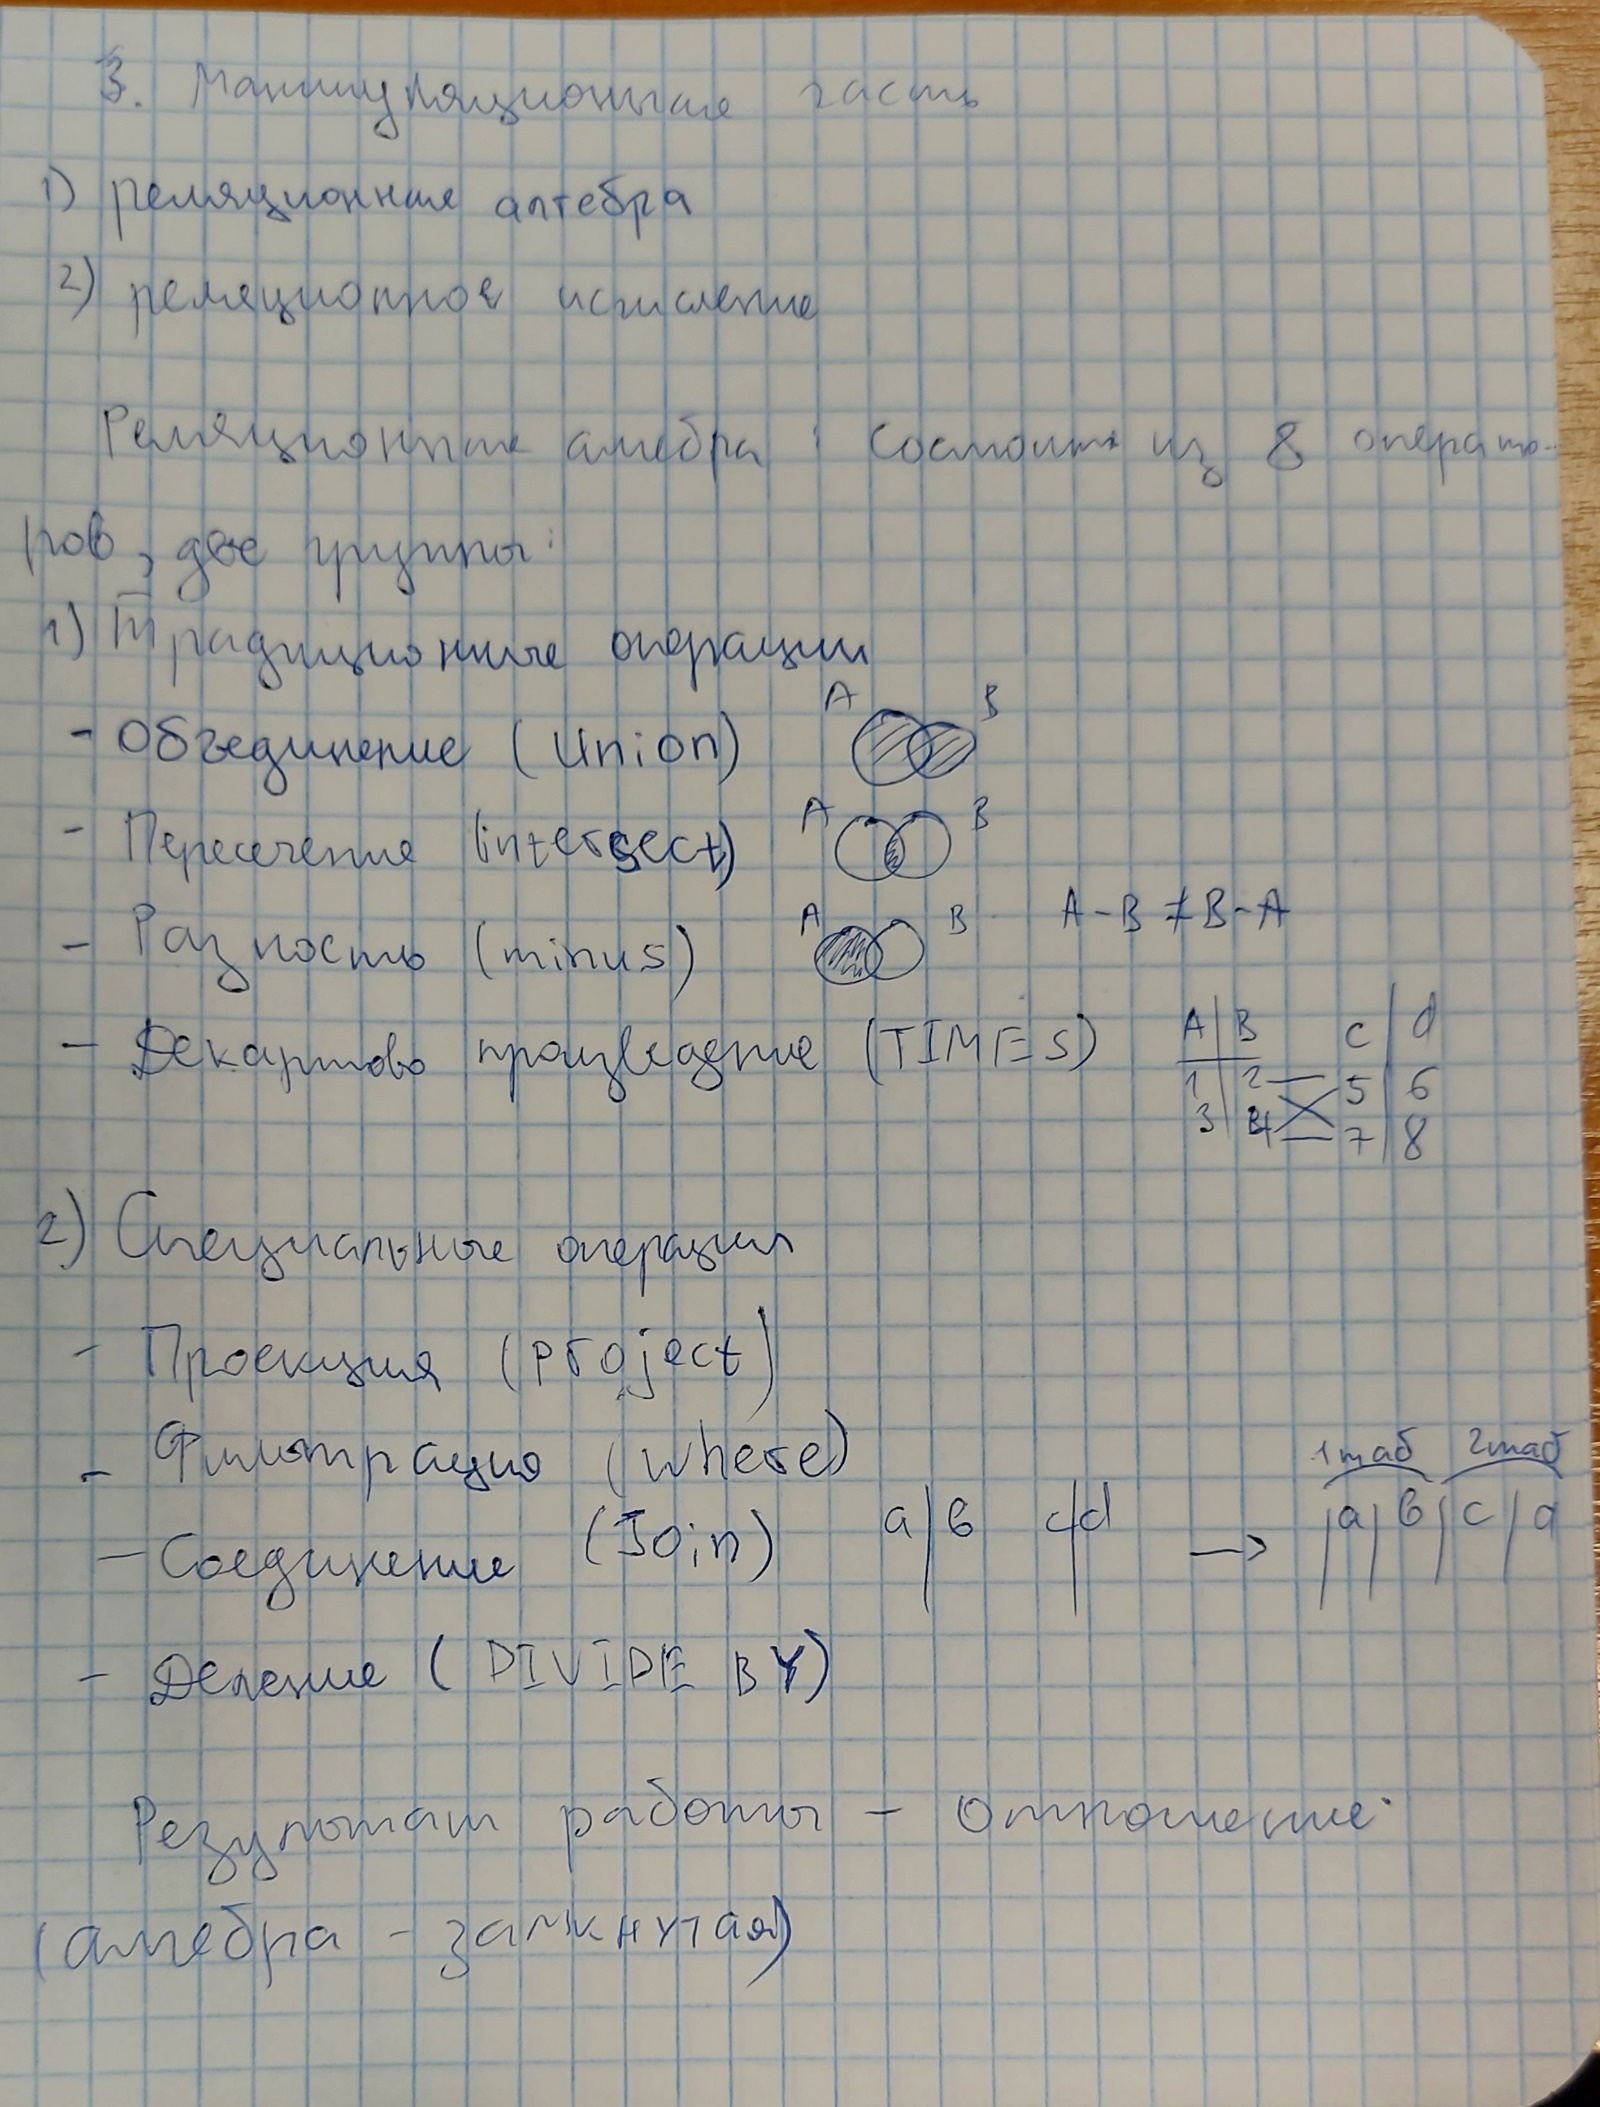 3. Манипуляционная часть
1) реляционная алгебра
2) реляционное исчисление
Реляционная алгебра: состоит из 8 операто-
ров, две группы:
1) Традиционные операции
A B
- Объединение (Union)
A B
- Пересечение (intersect)
A B A-B ≠ B-A
- Разность (minus)
- Декартово произведение (TIMES) A B c d
1 2 5 6
3 4 7 8
2) Специальные операции
- Проекция (project)
- Фильтрация (where) 1таб 2таб
- Соединение (Join) a в c d → a в c d
- Деление (DIVIDE BY)
Результат работы - отношение
(алгебра - замкнутая)